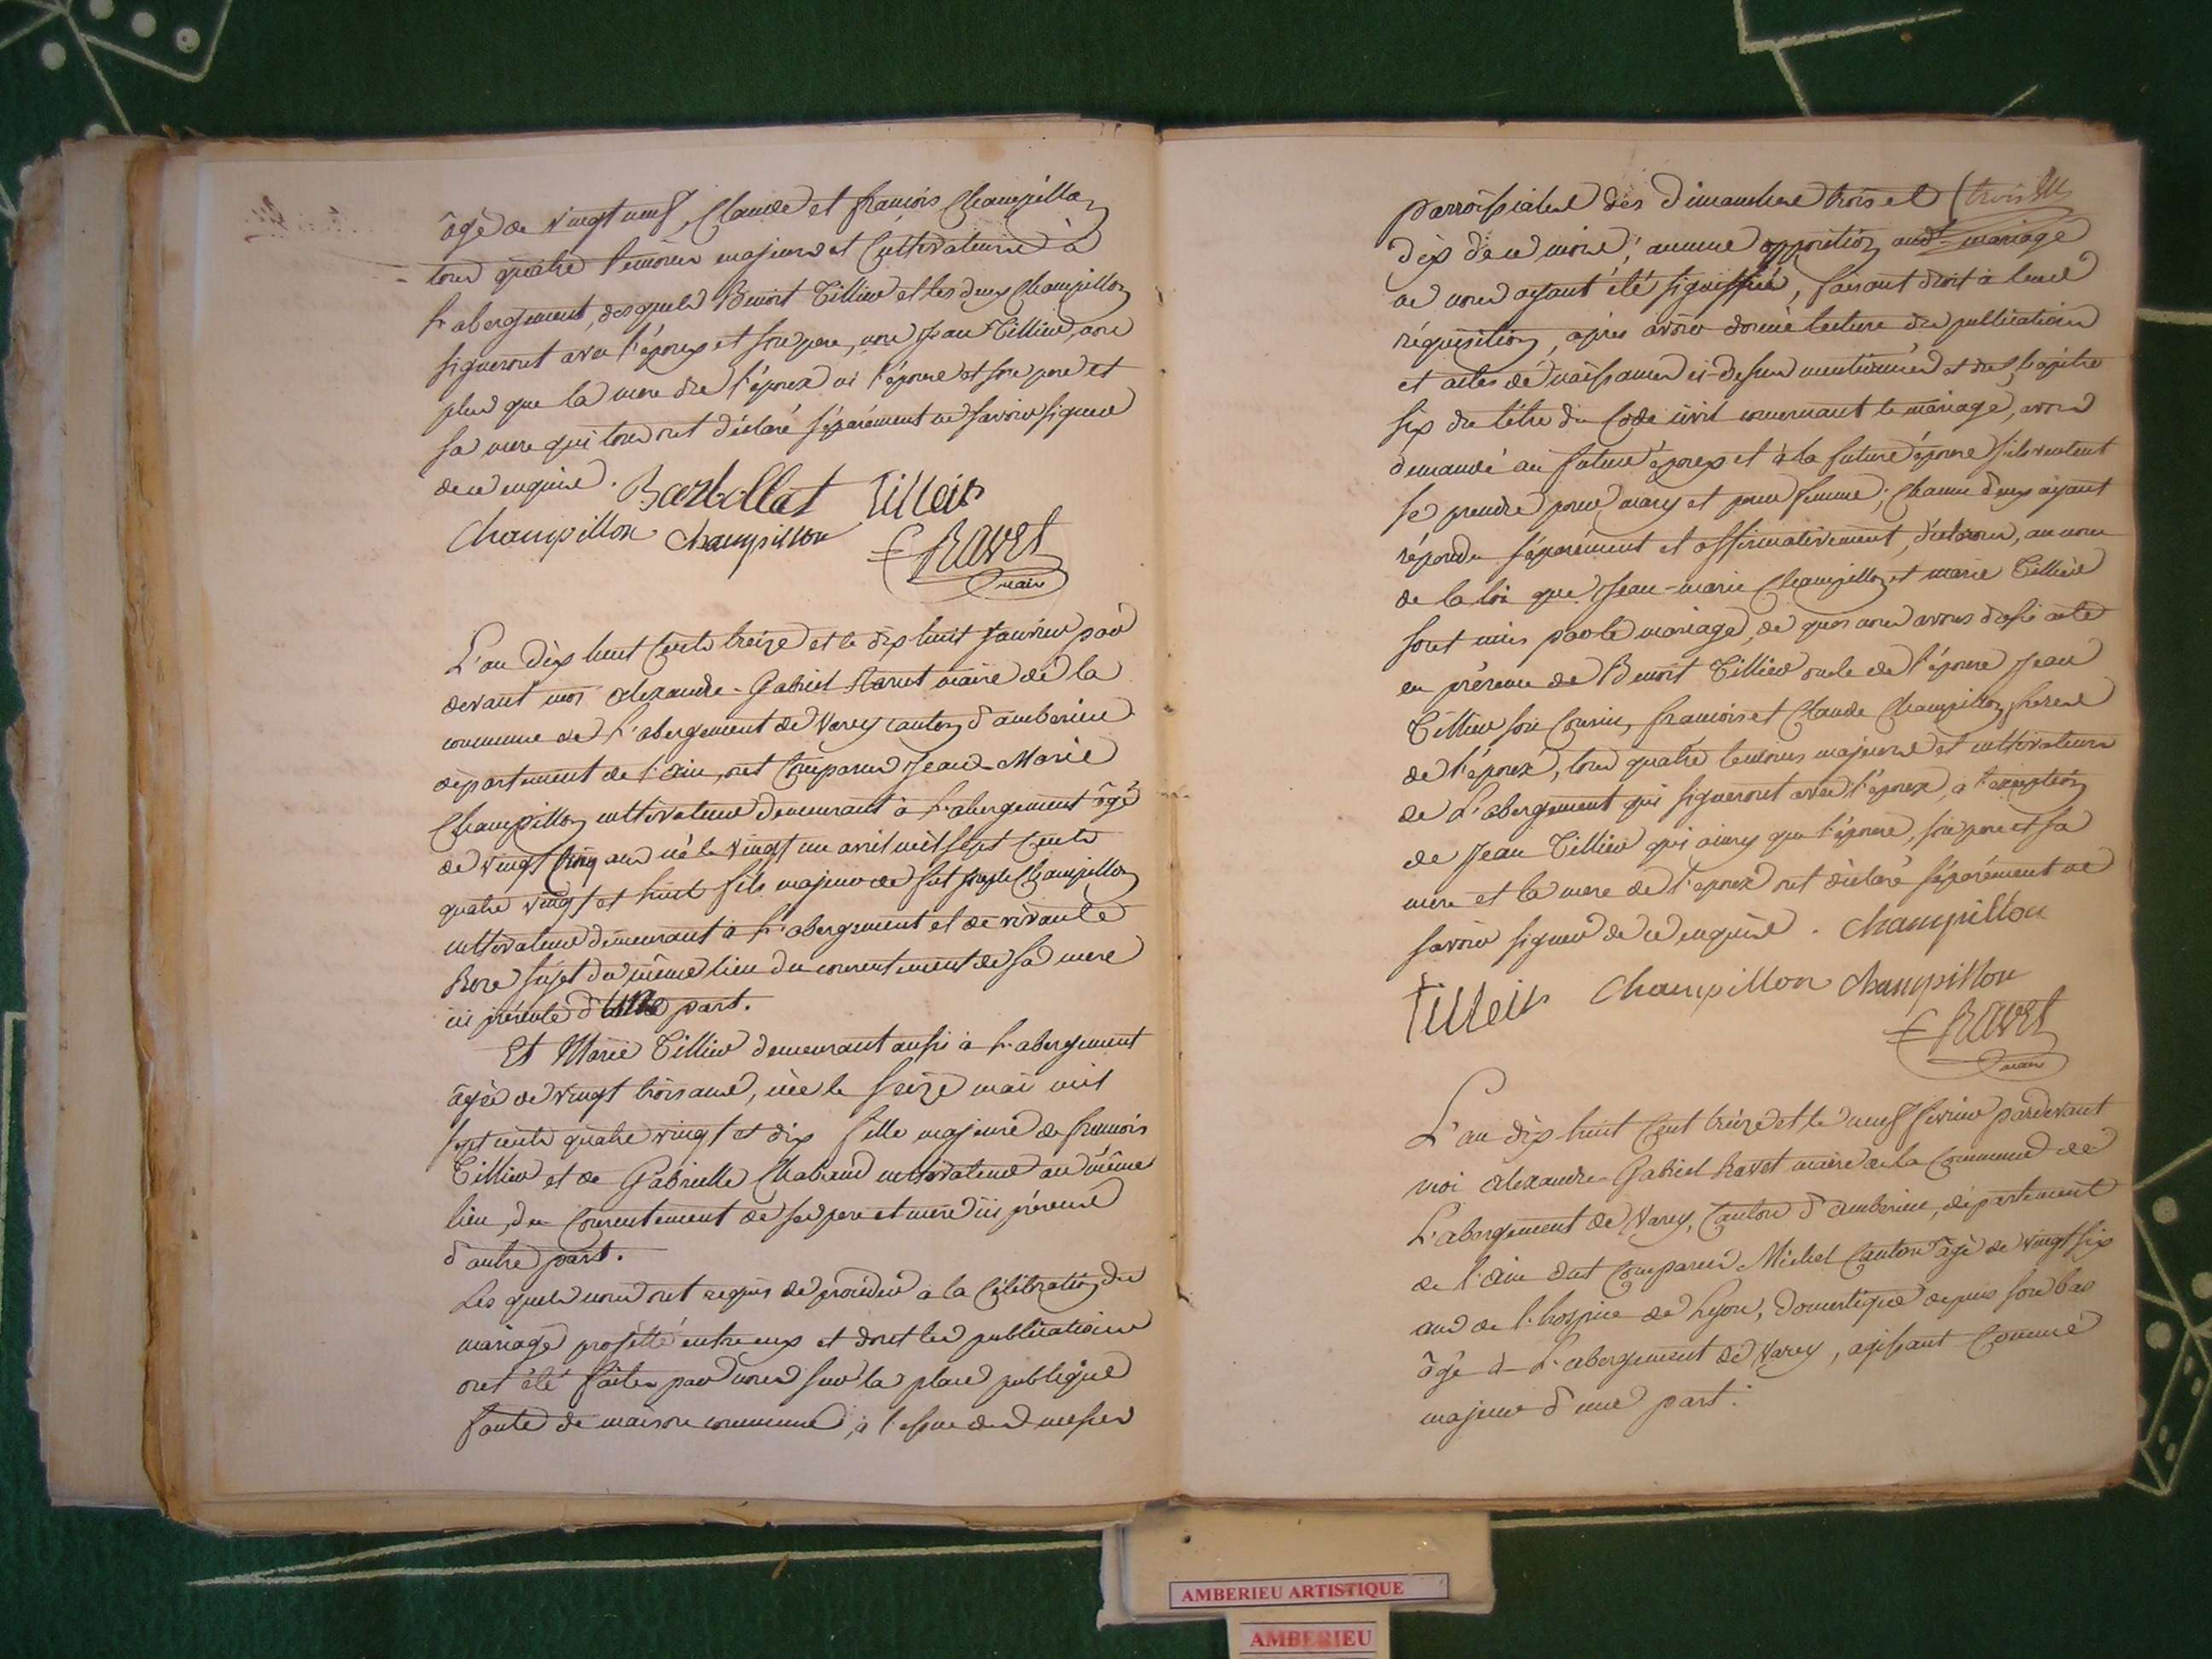 âgé de vingt neuf, Claude et françois Champillon
tous quatre temoins majeurs et Cultivateurs à
L'abergement, desquels Benoit Tillier et les deux Champillon
signeront avec l'époux et son pere, non Jean Tillier, non
plus que la mere de l'époux ni l'épouse et son pere et
sa mere qui tous ont déclaré séparément ne savoir signer
de ce enquis.
Barbollat Tilleir
Champillon Champillon
Ravet
maire
L'an dix huit Cents treize et le dix huit Janvier par
devant moi alexandre-Gabriel Ravet maire de la
commune de L'abergement de Varey canton d'amberieu
département de l'ain, ont Comparus Jean-Marie
Champillon cultivateur demeurant à L'abergement âgé
de vingt Cinq ans né le vingt un avril mil sept Cents
quatre vingt et huit fils majeur de fut Champillon
cultivateur demeurant à L'abergement et de vivante
Roze du même lieu du consentement de sa mere
ici présente d'une part.
Et Marie Tillier demeurant aussi à L'abergement
âgée de vingt trois ans, née le seize mai mil
sept cents quatre vingt et dix fille majeure de françois
Tillier et de Gabrielle Chabaud cultivateurs au même
lieu, du Consentement de ses pere et mere ici présens
d'autre part.
Les quels nous ont requis de procéder à la Célébration du
mariage projetté entre eux et dont les publications
ont été faites par nous sur la place publique
faute de maison commune, à l'issue des messes
parroissiales des Dimanches trois et (trois
dix de ce mois; aucune opposition audt mariage
ne nous ayant été signifiée, faisant droit à leur
réquisition, après avoir donné lecture des publications
et actes de naissances ci-dessus mentionnés et du Chapitre
six du titre du Code civil concernant le mariage, avons
demandé au futur époux et à la future épouse s'ils veulent
se prendre pour mary et pour femme; Chacun d'eux ayant
répondu séparément et affirmativement, déclarons, au nom
de la loi que Jean-marie Champillon et marie Tillier
sont unis par le mariage, de quoi nous avons dressé acte
en présence de Benoit Tillier oncle de l'épouse Jean
Tillier son Cousin, françois et Claude Champillon freres
de l'époux, tous quatre temoins majeurs et cultivateurs
de L'abergement qui signeront avec l'époux, à l'exception
de Jean Tillier qui ainsy que l'épouse, son pere et sa
mere et la mere de l'époux ont déclaré séparément ne
savoir signer de ce enquis. Champillon
Tilleir Champillon Champillon
Ravet
maire
L'an dix huit Cent treize et le neuf fevrier pardevant
moi alexandre-Gabriel Ravet maire de la Commune de
L'abergement de Varey, Canton d'amberieu, département
de l'ain ont Comparus Michel Canton âgé de vingt six
ans de l'hospice de Lyon, domestique depuis son bas
âge à L'abergement de Varey, agissant Comme
majeur d'une part.
AMBERIEU ARTISTIQUE
AMBERIEU